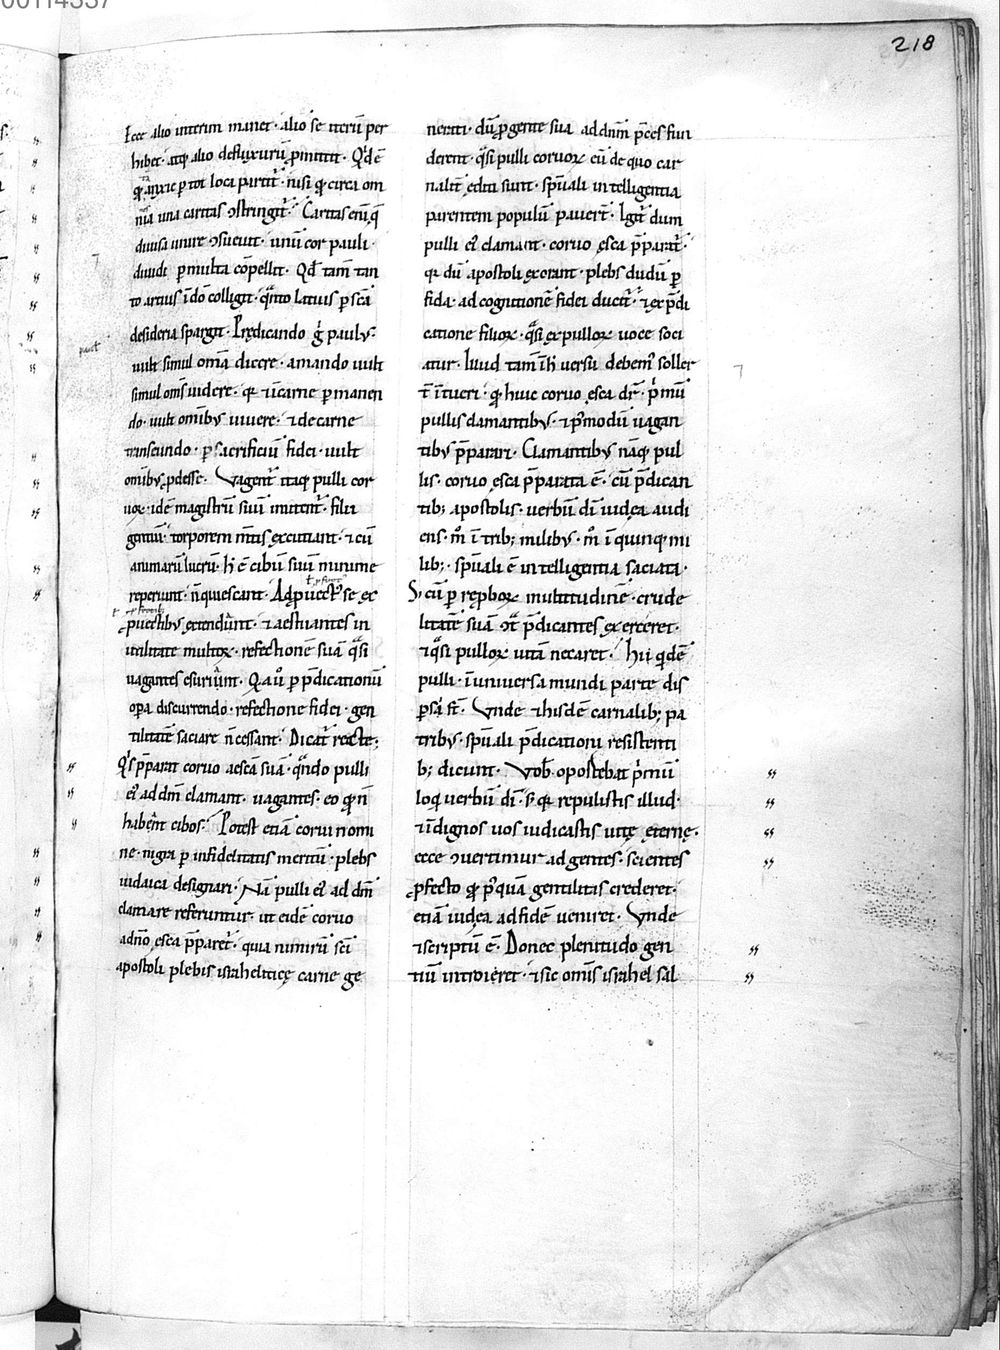 218
Ecce alio interim manet · alio se iterū per
hibet · atq; alio defluxurū ꝓmittit · Qd ē
qđ anxie ꝑ tot loca partit᷑ · nisi qđ circa om
nia una caritas ɔstringit᷑ · Caritas enī q̄
diuisa unire ɔsueuit · unū cor pauli ·
diuidi ꝑ multa cōpellit · Qđ tam̄ tan
to artius ī dō colligit · q̄nto latius ꝑ sc̄a
desideria spargit · Prędicando ḡ paulꝰ ·
uult simul om̄a dicere · amando uult
simul om̄s uidere · q̢ & in carne ꝑmanen
do · uult omībꝰ uiuere · & de carne
transeundo · ꝑ sacrificiū fidei · uult
omībꝰ ꝓdesse · Vagent᷑ itaq; pulli cor
uoꝝ · idē magistrū suū imitent᷑ · filii
gentiū · torporem mīis excutiant · & cū
animarū lucrū · h̄ ē cibū suū minime
reperiunt · n̄ quiescant · Ad ꝓuect᷒ se ex
ꝓuectibꝰ extendunt · & aestuantes in
utilitate multoꝝ · refectionē suā q̄si
uagantes esuriunt · Q̄a ū ꝑ p̄dicationū
opa discurrendo · refectione fidei · gen
tilitatē saciare n̄ cessant · Dicat᷑ recte ;
Qͥs p̄parat coruo aescā suā · q̄ndo pulli
eiꝰ ad dm̄ clamant · uagantes · eo qđ n̄
habent cibos · Potest etiā corui nomi
ne · nigra ꝑ infidelitatis meritū · plebs
iudaica designari · Nā pulli eiꝰ ad dm̄
clamare referuntur · ut eidē coruo
a dn̄o esca p̄paret᷑ · quia nimirū sc̄i
apostoli plebis israheliticę carne ge
nerati · dū ꝓ gente sua ad dnm̄ p̄ces fun
derent · q̄si pulli coruoꝝ cū de quo car
nalit᷑ editi sunt · spūali intelligentia
parentem populū pauert᷑ · Igit᷑ dum
pulli eiꝰ clamant · coruo ęsca p̄parat᷑ ·
q̢ dū apostoli exorant · plebs dudū ꝑ
fida · ad cognitionē fidei ducit᷑ · & ex p̄di
catione filioꝝ · q̄si ex pulloꝝ uoce soci
atur · Illud tam̄ ī h̄ uersu debemꝰ soller
t᷑ ītueri · qđ huic coruo ęsca dr̄ · pͥmū
pullis clamantibꝰ · & pꝰmodū uagan
tibꝰ p̄parari · Clamantibꝰ nāq; pul
lis · coruo ęsca p̄parata ē · cū p̄dican
tib; apostolis · uerbū dī iudęa audi
ens · m̊ ī trib; milibꝰ · m̊ ī quinq; mi
lib; · spūali ē intelligentia saciata ·
S; cū ꝑ reꝓboꝝ multitudinē · crude
litatē suā ɔt᷑ p̄dicantes exerceret ·
& q̄si pulloꝝ uitā necaret · hii qͥdē
pulli · ī uniuersa mundi parte dis
ꝑsi st̄ · Vnde & hisdē carnalib; pa
tribꝰ · spūali p̄dicationi resistenti
b; dicunt · Vob̄ oportebat pͥmū
loqi uerbū dī · s; q̢ repulistis illud ·
& īdignos uos iudicastis uitę ęternę ·
ecce ɔuertimur ad gentes · scientes
ꝓfecto qđ pꝰquā gentilitas crederet ·
etiā iudęa ad fidē ueniret · Vnde
& scriptū ē · Donec plenitudo gen
tiū introieret · & sic om̄s israhel sal